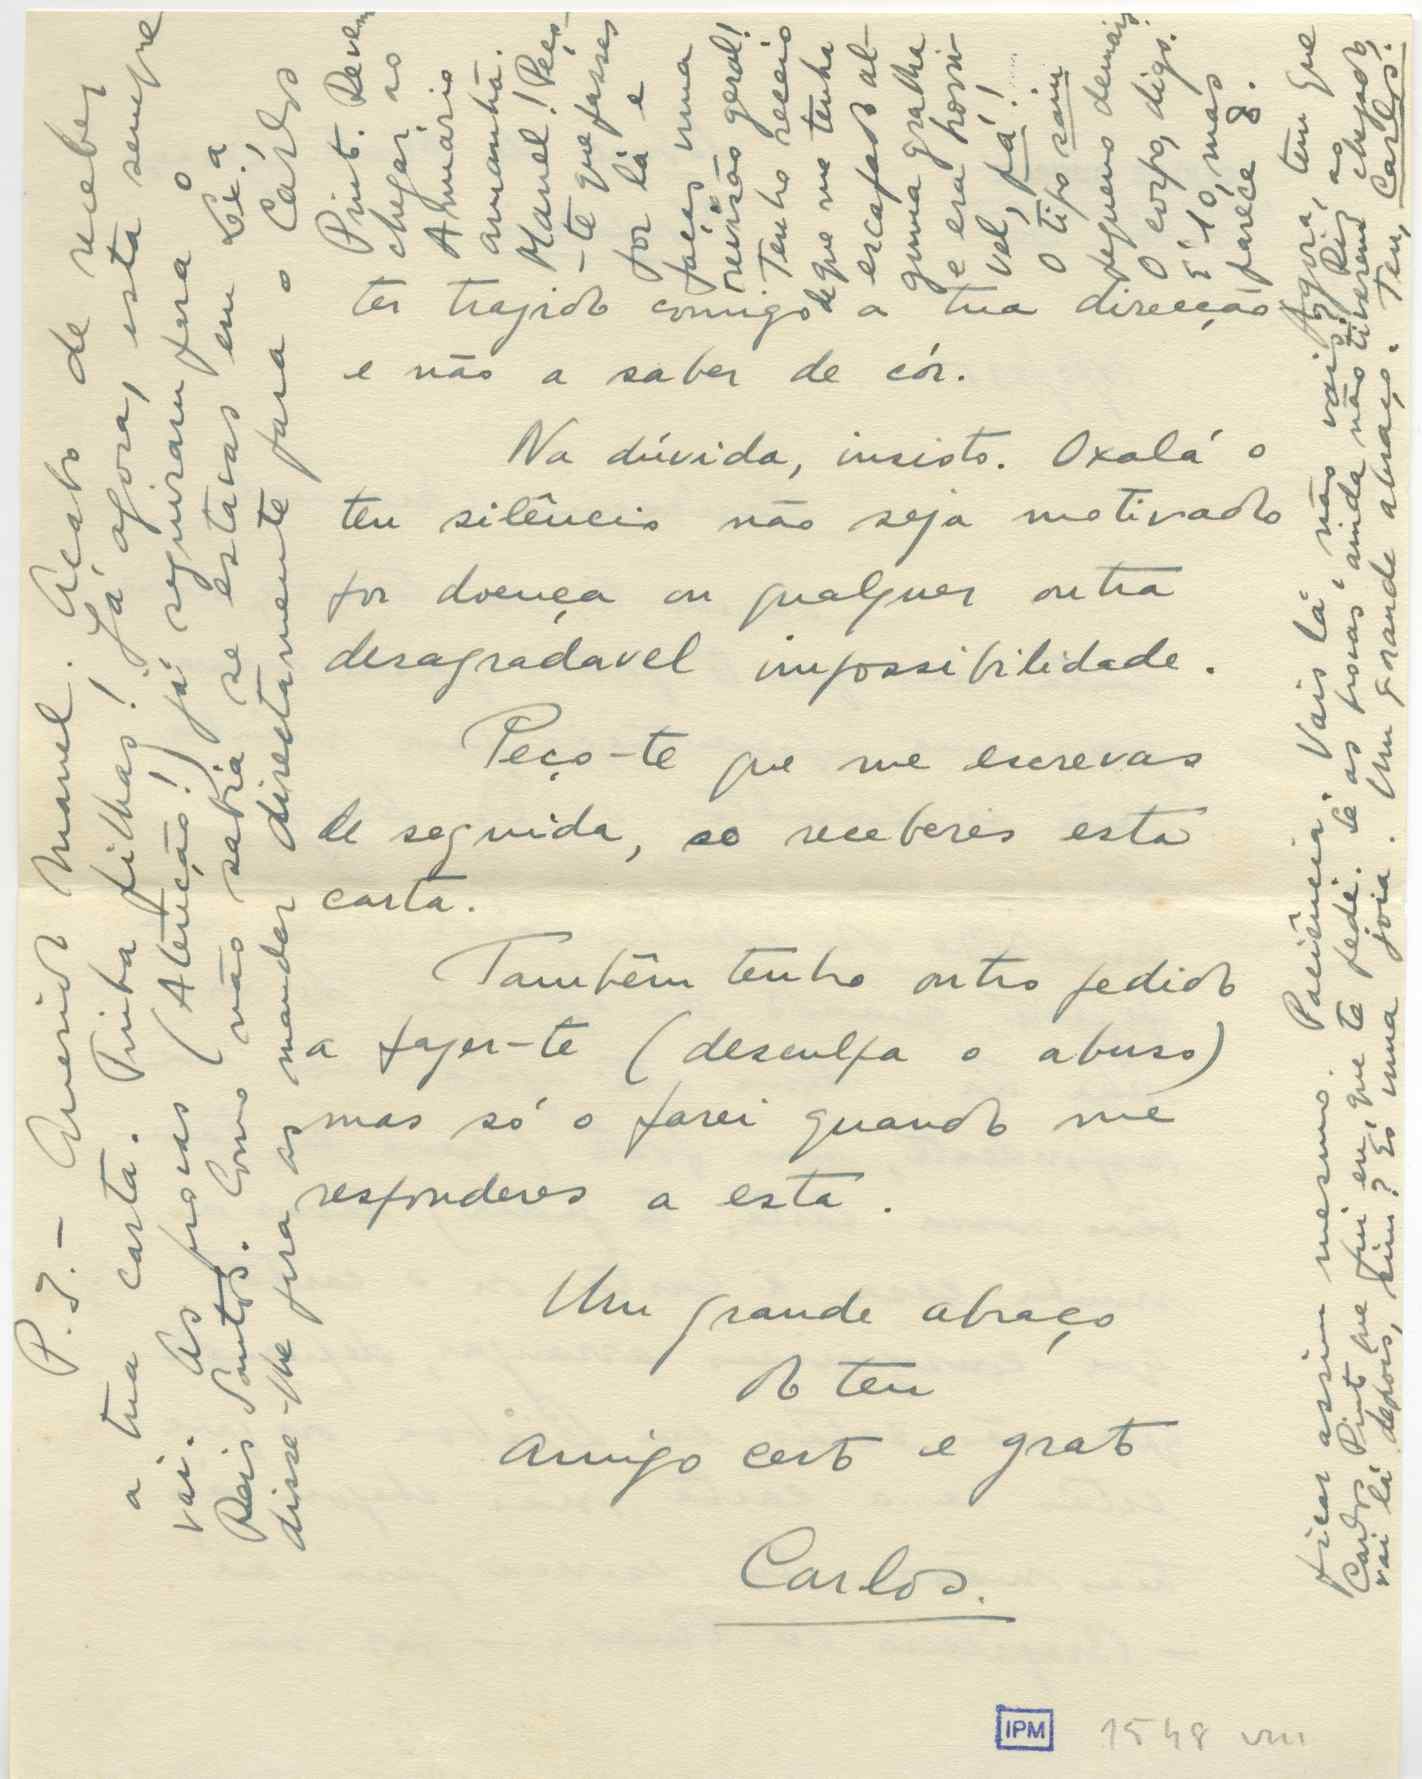 ter trazido comigo a tua direcção
e não a saber de cór.
Na dúvida, insisto. Oxalá o
teu silêncio não seja motivado
por doença ou qualquer outra
desagradavel impossibilidade.
Peço-te que me escrevas
de seguida, se receberes esta
carta.
Tambêm tenho outro pedido
a fazer-te (desculpa o abuso)
mas só o farei quando me
responderes a esta.
Um grande abraço
do teu
amigo certo e grato
Carlos.
P.S. - Querido Manuel. Acabo de receber
a tua carta. Tinha filhas! Já agora, esta sempre
vai. As provas (Atenção!) já seguiram para o
Reis Santos. Como não sabia se estavas em Lx.a
disse-lhe para as mandar directamente para o Carlos
Pinto. Devem
chegar ao
Armário
amanhã.
Manuel! Peço-
-te que passes
por lá e
faças uma
revisão geral!
Tenho receio
de que me tenha
escapado al-
guma gralha
e era horri-
vel, pá!
O tipo saiu
pequeno demais.
O corpo, digo.
É 10, mas
parece 8.
Agora, tem que
ficar assim mesmo. Paciência. Vais lá, não vais? Diz ao
Carlos Pinto que fui eu que te pedi. Se as provas ainda não tiverem chegado,
vai lá depois, sim? És uma joia. Um grande abraço. Teu, Carlos.
IPM
1548 VIII